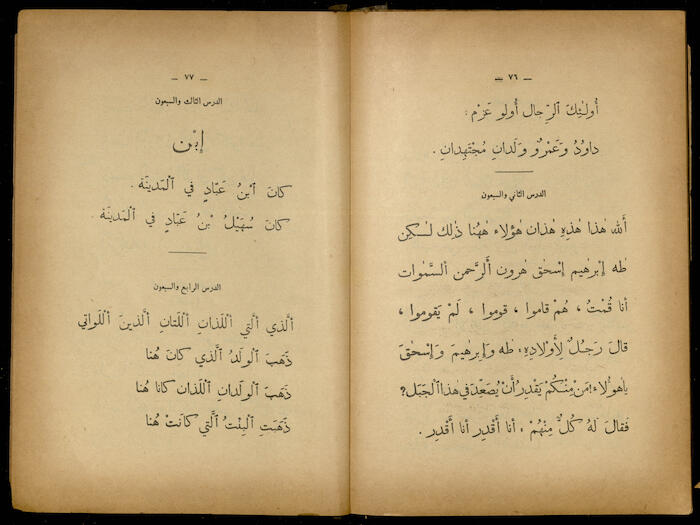 — ٧٦ —
أُولٰئِكَ ٱلرِّجال أُولو عَزْم :
داوُدُ وَعَمْرٌو وَلَدانِ مُجْتَهِدانِ .
الدرس الثاني والسبعون
أَللّٰه هٰذا هٰذِهِ هٰذان هٰؤلاء هٰهُنا ذٰلك لٰكِن
طٰه إبرٰهيم إسحٰق هٰرون ألرَّحمن ألسَّمٰوات
أنا قُمْتُ ، هُمْ قاموا ، قوموا ، لَمْ يَقوموا ،
قالَ رَجُلٌ لِأَولادِهِ : طٰه وَإبرٰهيمَ وَإسحٰقَ
ياهٰؤلاء! مَنْ مِنْكُم يَقْدِرُ أَنْ يُصَعِّدَ في هٰذا ٱلجَبَل؟
فَقالَ لَهُ كُلٌّ مِنْهُمْ : أنا أَقْدِر أنا أَقْدِر .
— ٧٧ —
الدرس الثالث والسبعون
إبْن
كانَ ٱبْنُ عَبّادٍ في ٱلمَدينَة .
كانَ سُهَيْلُ بْنُ عَبّادٍ في ٱلمَدينَة .
الدرس الرابع والسبعون
ألَّذي ألَّتي أللَّذانِ أللَّتانِ ألَّذينَ أللَّواتي
ذَهَبَ ٱلوَلَدُ ٱلَّذي كانَ هُنا
ذَهَبَ ٱلوَلَدانِ ٱللَّذان كانا هُنا
ذَهَبَتِ ٱلبِنْتُ ٱلَّتي كانَتْ هُنا